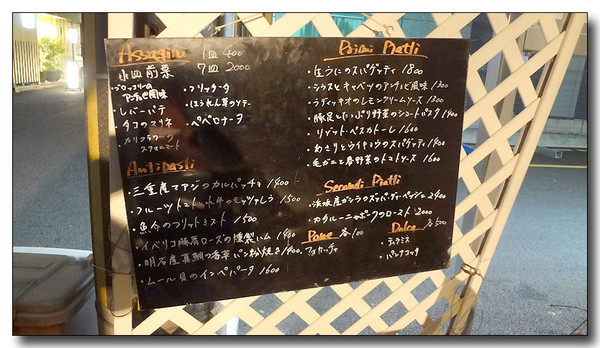 Assagini 1皿 400
小皿前菜 7皿 2000
・ブロッコリーのアンチョビ風味
・フリッタータ
・レバーパテ
・ほうれん草のソテー
・タコのマリネ
・ペペロナータ
・カリフラワー
Antipasti
・三重産マアジのカルパッチョ 1400
・フルーツトマトと水牛のモッツァレラ 1500
・魚介のフリットミスト 1500
・イベリコ豚肩ロースの燻製ハム 1400
・明石産真鯛の香草パン粉焼き 1400
・ムール貝のインペパータ 1600
Primi Piatti
・生うにのスパゲッティ 1800
・シラスとキャベツのアンチョビ風味 1300
・ラディッキオのレモンクリームソース 1300
・豚足とたっぷり野菜のショートパスタ 1400
・リゾット・ペスカトーレ 1600
・あさりとウイキョウのスパゲッティ 1400
・毛ガニと春野菜のトマトソース 1600
Secondi Piatti
・浜坂産ガシラのズッパ・ディ・ペッシェ 2400
・カタルーニャポークのロースト 2000
Pane 各100
フォカッチャ
Dolce 各500
・ティラミス
・パンナコッタ